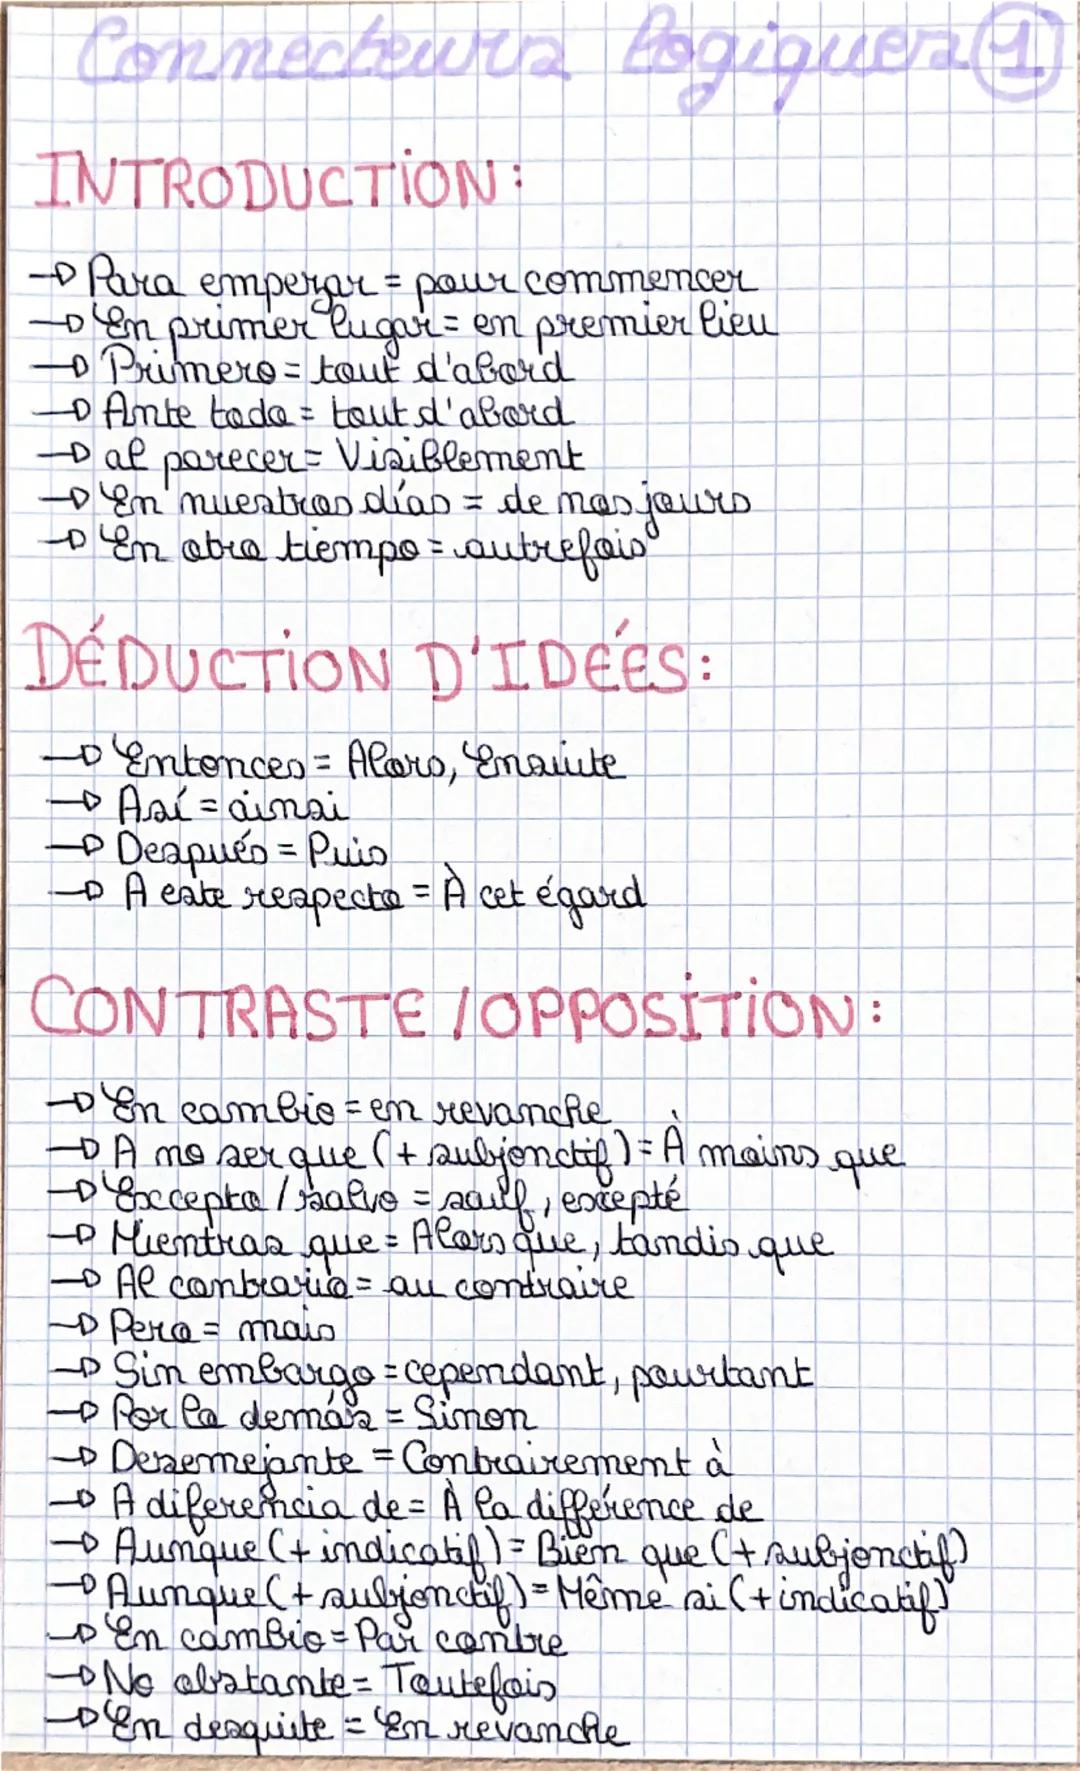 Connecteurs logiques 1
INTRODUCTION:
→ Para empezar = pour commencer
→ En primer lugar = en premier lieu
→ Primero = tout d'abord
→ Ante todo = tout d'abord
→ al parecer = Visiblement
→ En nuestros días = de nos jours
→ En otro tiempo = autrefois
DÉDUCTION D'IDÉES:
→ Entonces = Alors, Ensuite
→ Así = ainsi
→ Después = Puis
→ A este respecto = À cet égard
CONTRASTE / OPPOSITION:
→ En cambio = en revanche
→ A no ser que (+ subjonctif) = À moins que
→ Excepto / salvo = sauf, excepté
→ Mientras que = Alors que, tandis que
→ Al contrario = au contraire
→ Pero = mais
→ Sin embargo = cependant, pourtant
→ Por lo demás = Sinon
→ Desemejante = Contrairement à
→ A diferencia de = À la différence de
→ Aunque (+ indicatif) = Bien que (+ subjonctif)
→ Aunque (+ subjonctif) = Même si (+ indicatif)
→ En cambio = Par contre
→ No obstante = Toutefois
→ En desquite = En revanche